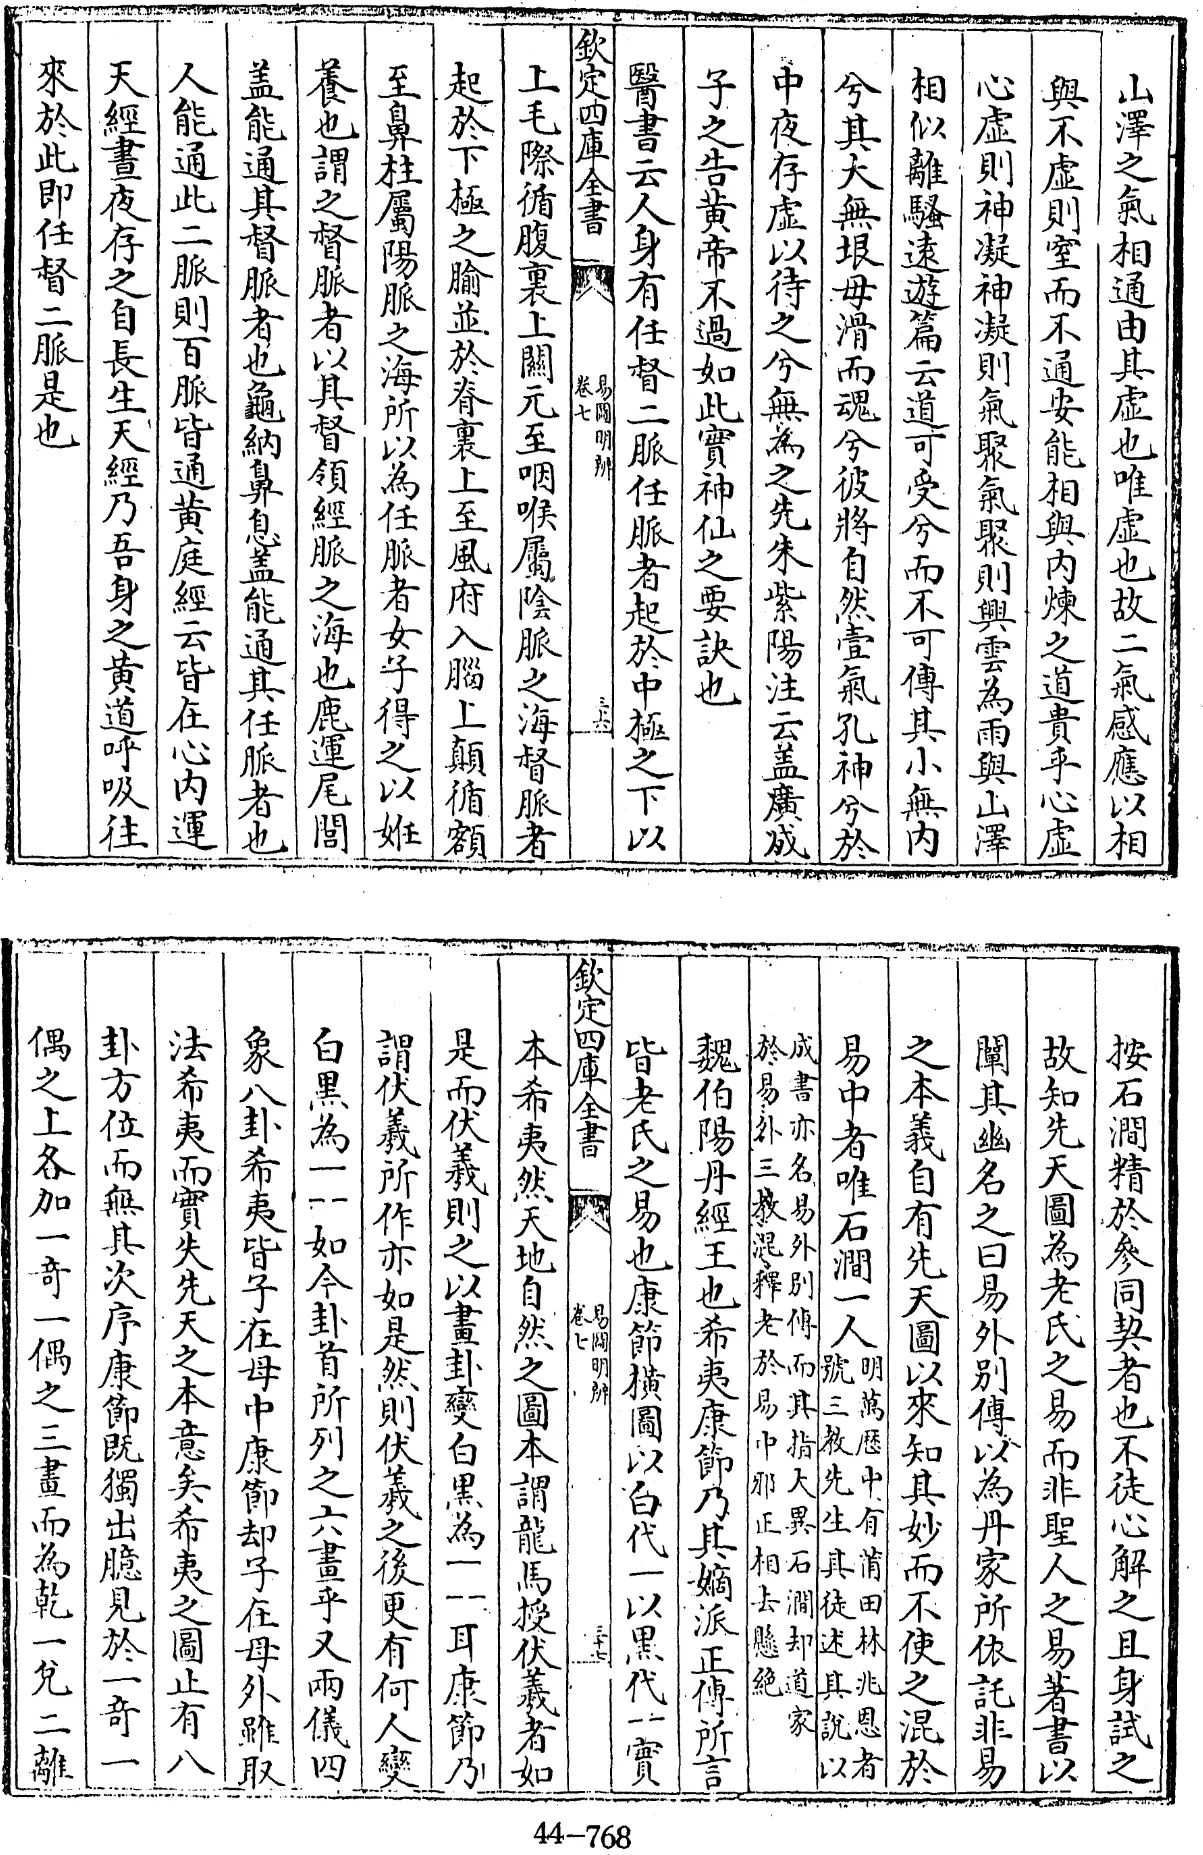 山澤之氣相通由其虛也唯虛也故二氣感應以相
與不虛則窒而不通安能相與内煉之道貴乎心虛
心虛則神凝神凝則氣聚氣聚則興雲為雨與山澤
相似離騷逺遊篇云道可受兮而不可傳其小無内
兮其大無垠毋滑而魂兮彼將自然壹氣孔神兮於
中夜存虛以待之兮無為之先朱紫陽注云盖廣成
子之告黄帝不過如此實神仙之要訣也
醫書云人身有任督二脈任脈者起於中極之下以
欽定四庫全書
易圖明辨
卷七
三六
上毛際循腹裏上關元至咽喉屬陰脈之海督脈者
起於下極之腧並於脊裏上至風府入腦上顛循額
至鼻柱屬陽脈之海所以為任脈者女子得之以妊
養也謂之督脈者以其督領經脈之海也鹿運尾閭
盖能通其督脈者也龜納鼻息盖能通其任脈者也
人能通此二脈則百脈皆通黄庭經云皆在心内運
天經晝夜存之自長生天經乃吾身之黄道呼吸往
來於此即任督二脈是也
按石澗精於參同契者也不徒心解之且身試之
故知先天圖為老氏之易而非聖人之易著書以
闡其幽名之曰易外别傳以為丹家所依託非易
之本義自有先天圖以來知其妙而不使之混於
易中者唯石澗一人明萬厯中有莆田林兆恩者
號三教先生其徒述其說以
成書亦名易外别傳而其指大異石澗却道家
於易外三教混釋老於易中邪正相去懸絶
魏伯陽丹經王也希夷康節乃其嫡派正傳所言
皆老氏之易也康節橫圖以白代一以黑代--實
欽定四庫全書
易圖明辨
卷七
三十七
本希夷然天地自然之圖本謂龍馬授伏羲者如
是而伏羲則之以畫卦變白黑為一--耳康節乃
謂伏羲所作亦如是然則伏羲之後更有何人變
白黑為一--如今卦首所列之六畫乎又兩儀四
象八卦希夷皆子在母中康節却子在母外雖取
法希夷而實失先天之本意矣希夷之圖止有八
卦方位而無其次序康節既獨出臆見於一奇一
偶之上各加一奇一偶之三畫而為乾一兌二離